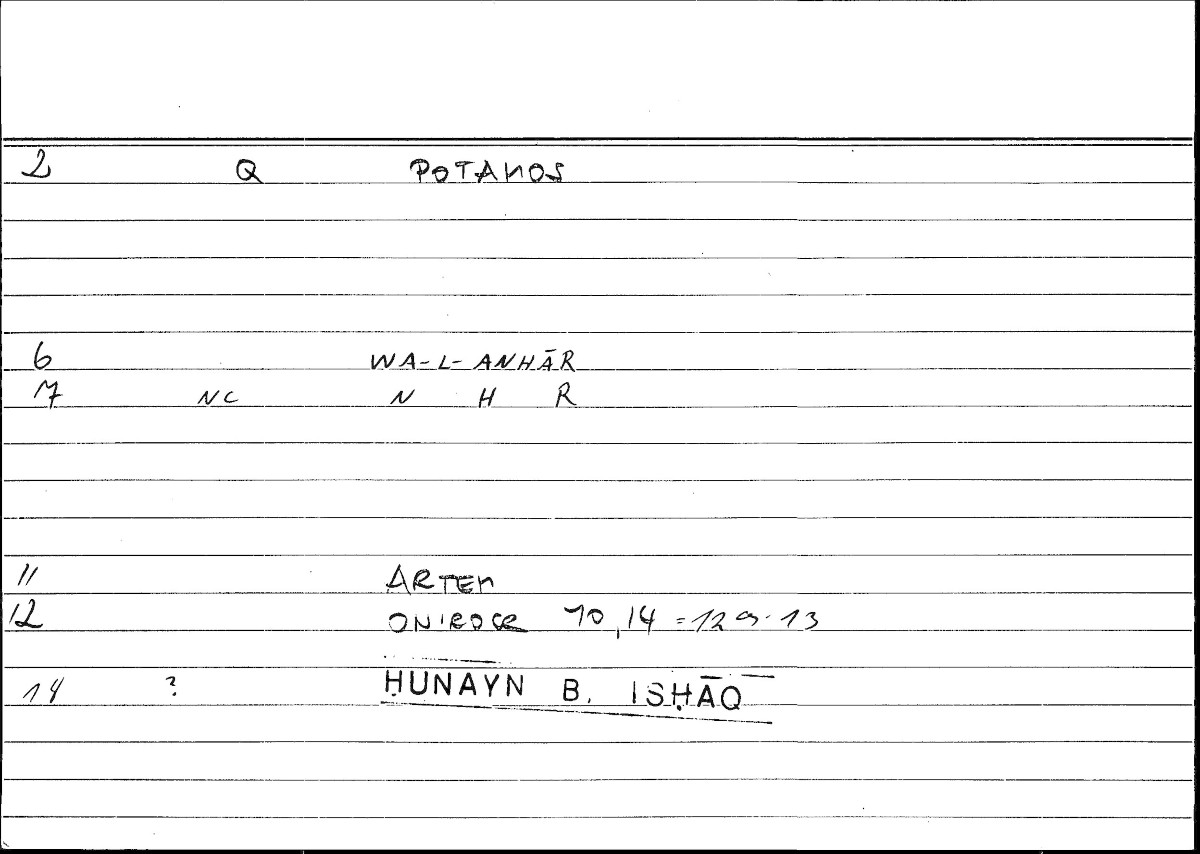 2 Q POTAMOS
6 WA-L-ANHĀR
7 NC N H R
11 ARTEM
12 ONIROCR 10,14 = 12
14 ? ḤUNAYN B. ISḤĀQ